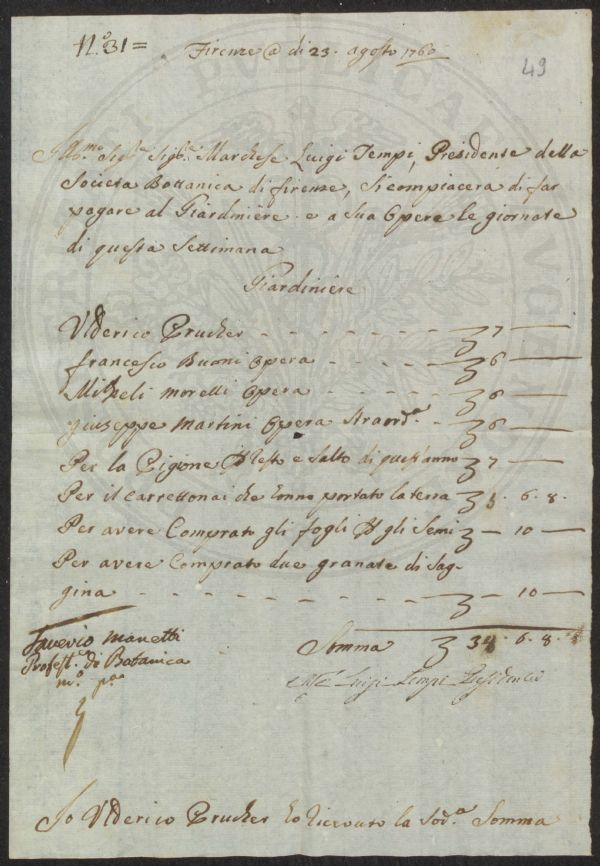 N.º 31 =
Firenze @ di 23. agosto 1760
49
Ill.mo Sig.re Sig.re Marchese Luigi Tempi, Presidente della
Società Bottanica di firenze, Si compiacerà di far
pagare al Giardiniere e a sua Opere le giornate
di questa Settimana
Giardiniere
Uldérico Prucker - - - - - - 7 —
francesco Buoni Opera - - - - 6 —
Miheli morelli Opera - - - - 6 —
giuseppe Martini Opera Straord.a - - 6 —
Per la Pigione Resto e Salto di quest'anno 7 —
Per il Carrettonai che honno portato la terra . 6 . 8 .
Per avere Comprato gli fogli gli Semi — 10 —
Per avere Comprato due granate di Sag-
gina - - - - - - — 10 —
Saverio Manetti
Profess.e di Botanica
m.o p.a
Somma 34 . 6 . 8 .
Luigi Tempi Presidente
Io Ulderico Prucker ho ricevuto la Sod.a Somma